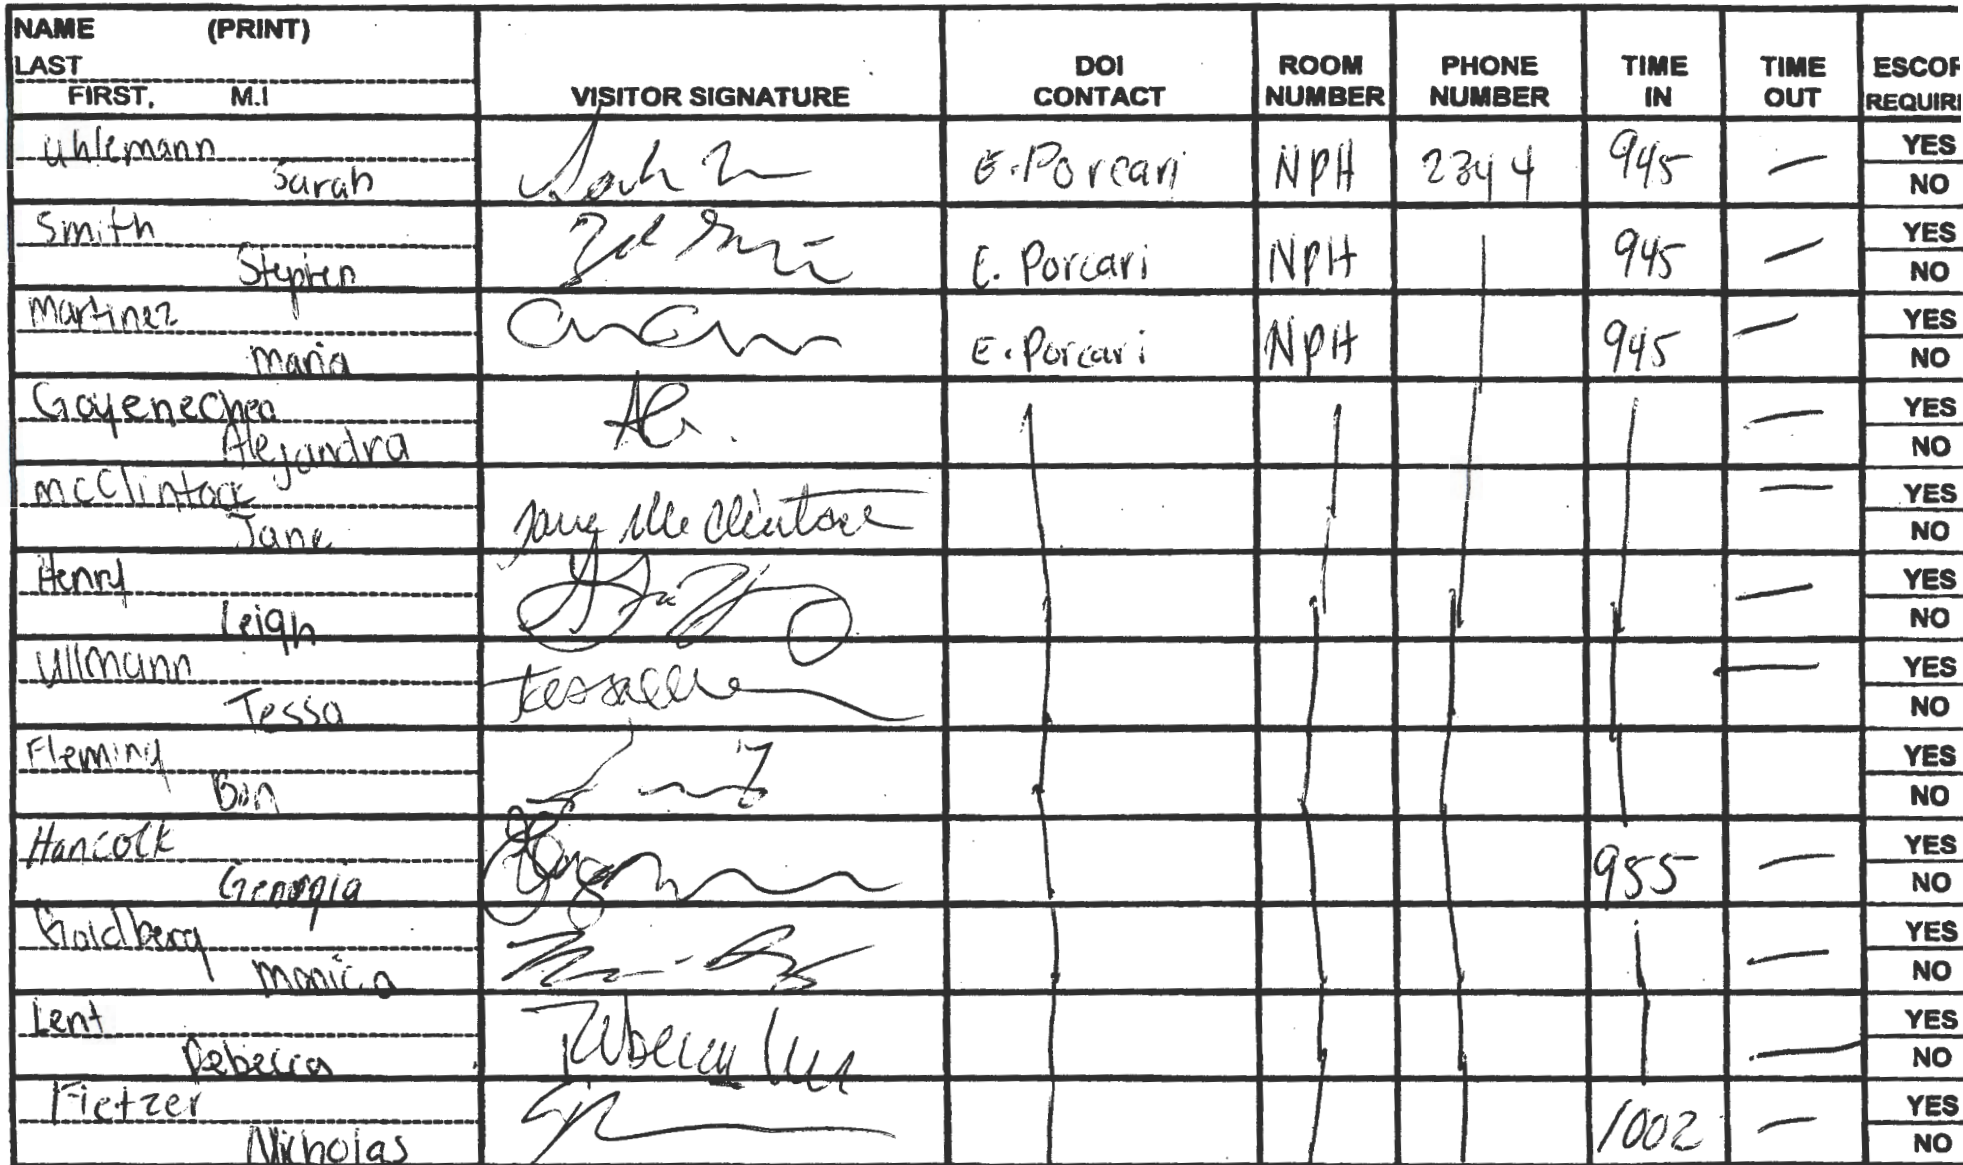 NAME (PRINT)
LAST
FIRST, M.I
VISITOR SIGNATURE
DOI CONTACT
ROOM NUMBER
PHONE NUMBER
TIME IN
TIME OUT
ESCOR
REQUIRE
Uhlemann
Sarah
E. Porcari NPH 2344 945 —
YES
NO
Smith
Stephen
E. Porcari NPH 945 —
YES
NO
Martinez
Maria
E. Porcari NPH 945 —
YES
NO
Goyenechea
Alejandra
AG.
—
YES
NO
McClintock
Jane
Jane McClintock
—
YES
NO
Henry
Leigh
—
YES
NO
Ullmann
Tessa
—
YES
NO
Fleming
Ben
YES
NO
Hancock
Georgia
955 —
YES
NO
Goldberg
Monica
—
YES
NO
Lent
Rebecca
Rebecca Lent
—
YES
NO
Fietzer
Nicholas
1002 —
YES
NO